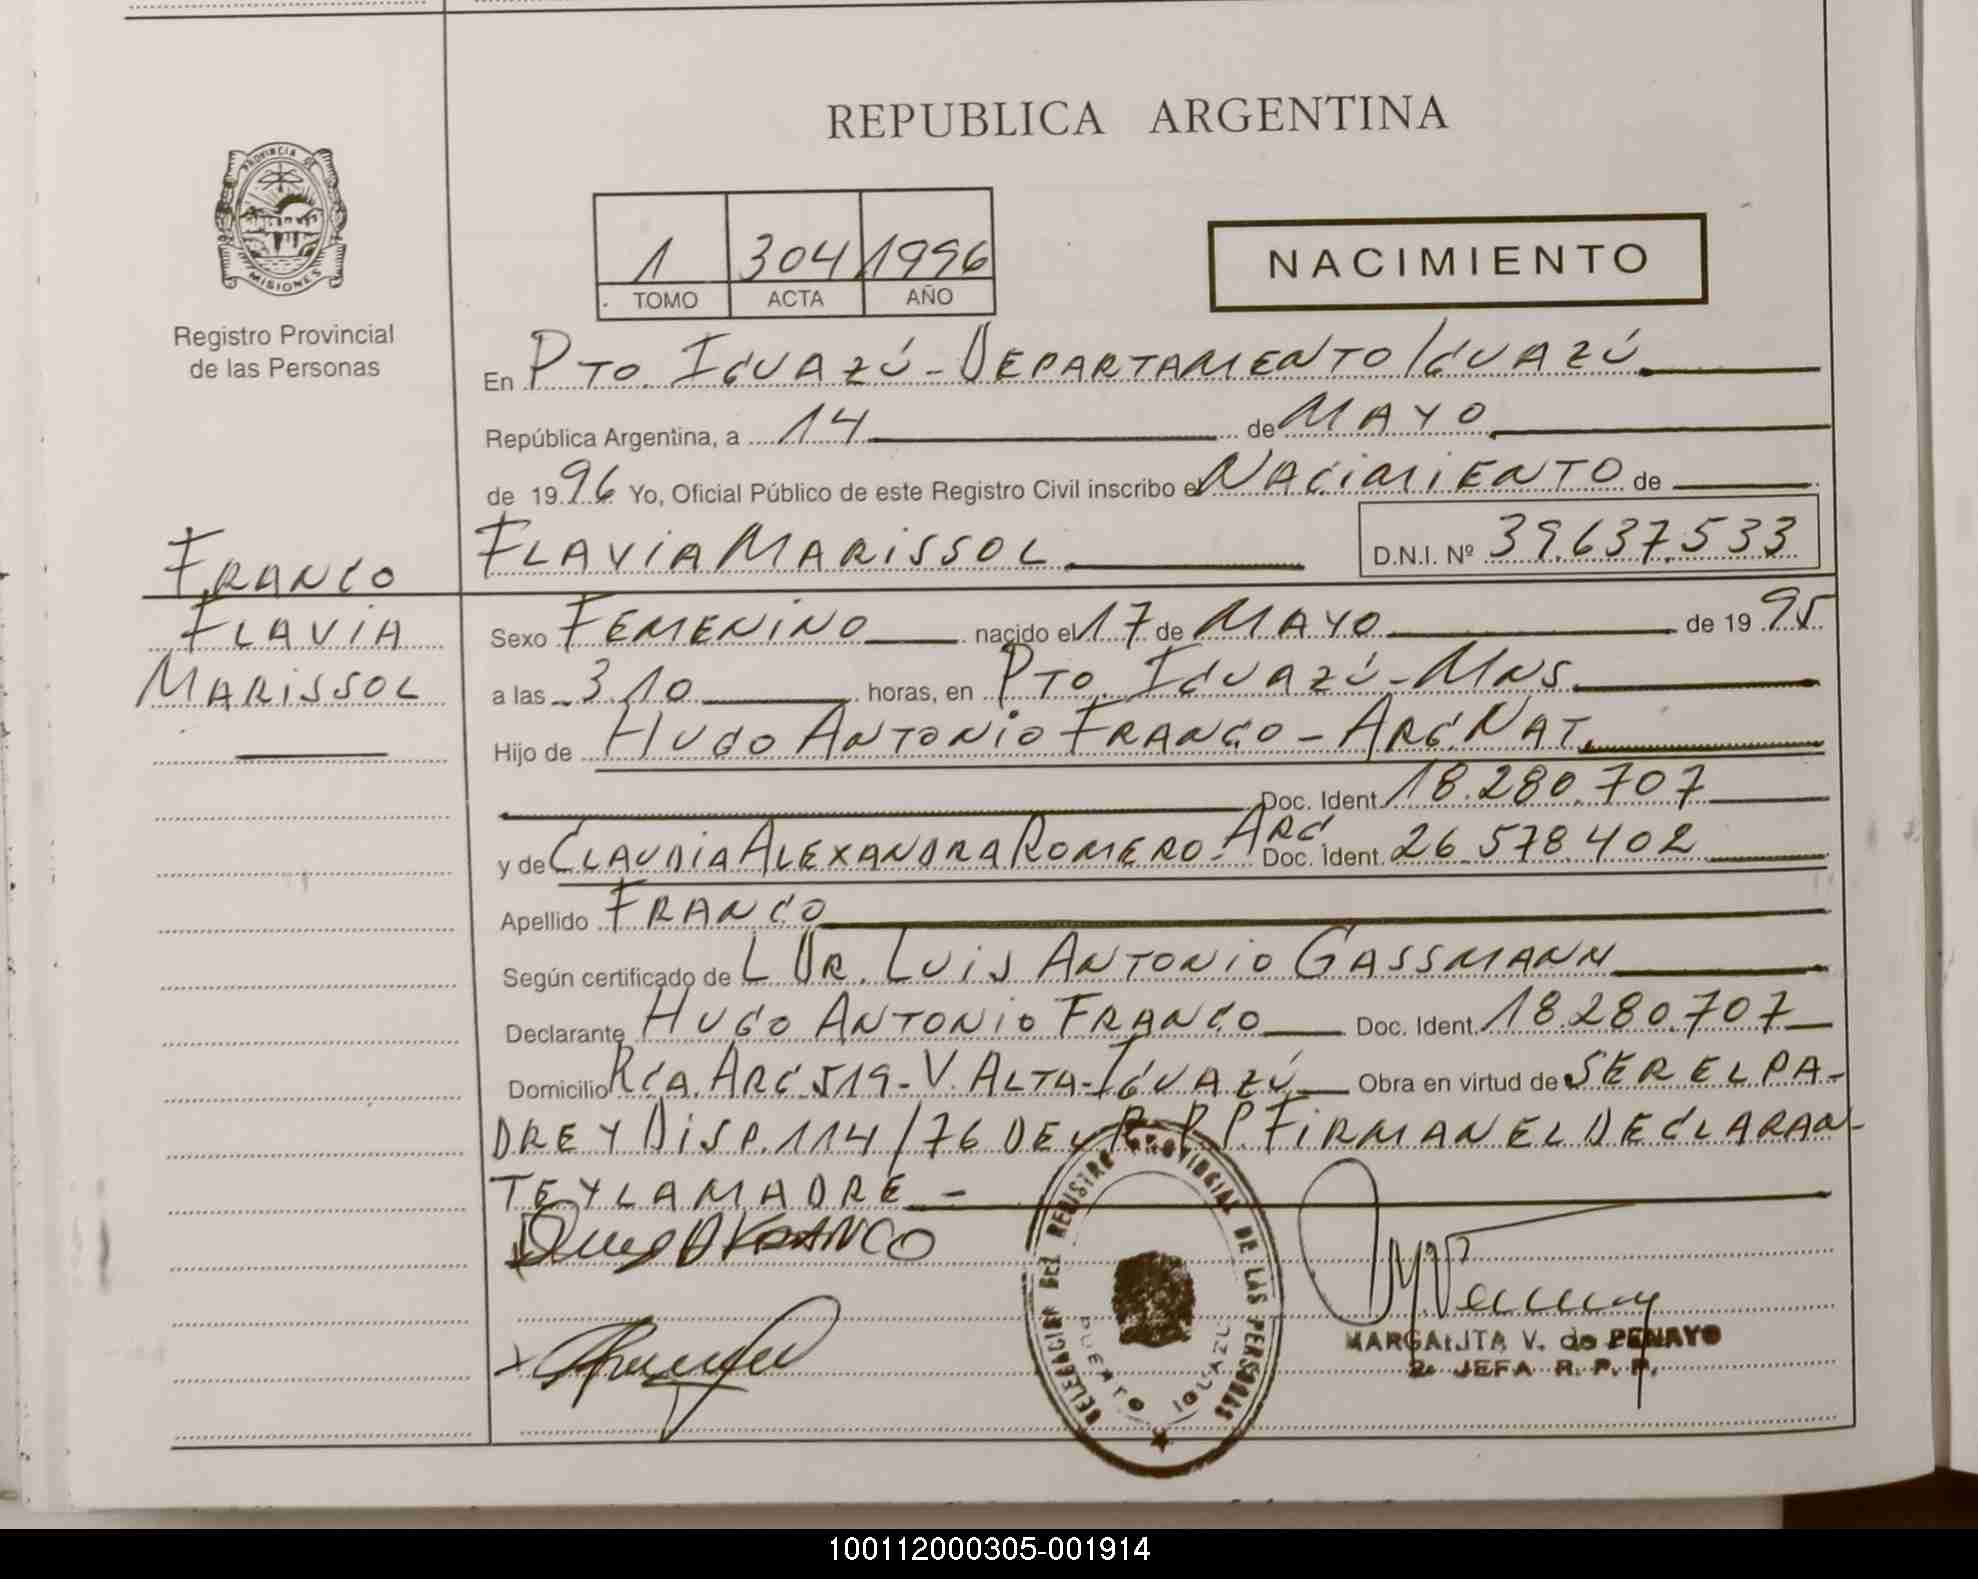 REPUBLICA ARGENTINA
PROVINCIA DE MISIONES
Registro Provincial
de las Personas
1 304 1996
TOMO ACTA AÑO
NACIMIENTO
En PTO. IGUAZÚ - DEPARTAMENTO IGUAZÚ
República Argentina, a 14 de MAYO
de 1996 Yo, Oficial Público de este Registro Civil inscribo el NACIMIENTO de
FLAVIA MARISSOL D.N.I. Nº 39.637.533
FRANCO
FLAVIA
MARISSOL
Sexo FEMENINO nacido el 17 de MAYO de 1995
a las 3.10 horas, en PTO. IGUAZÚ - MNS.
Hijo de HUGO ANTONIO FRANCO - ARG. NAT.
Doc. Ident. 18.280.707
y de CLAUDIA ALEXANDRA ROMERO - ARG Doc. Ident. 26.578.402
Apellido FRANCO
Según certificado de L DR. LUIS ANTONIO GASSMANN
Declarante HUGO ANTONIO FRANCO Doc. Ident. 18.280.707
Domicilio RCA. ARG 519 - V. ALTA - IGUAZÚ Obra en virtud de SER EL PA-
DRE Y DISP. 114/76 DEL R.P.P. FIRMAN EL DECLARAN-
TE Y LA MADRE -
FRANCO
DELEGACION DEL REGISTRO PROVINCIAL DE LAS PERSONAS
PUERTO IGUAZU
MARGARITA V. de PENAYO
2ª JEFA R. P. P.
100112000305-001914